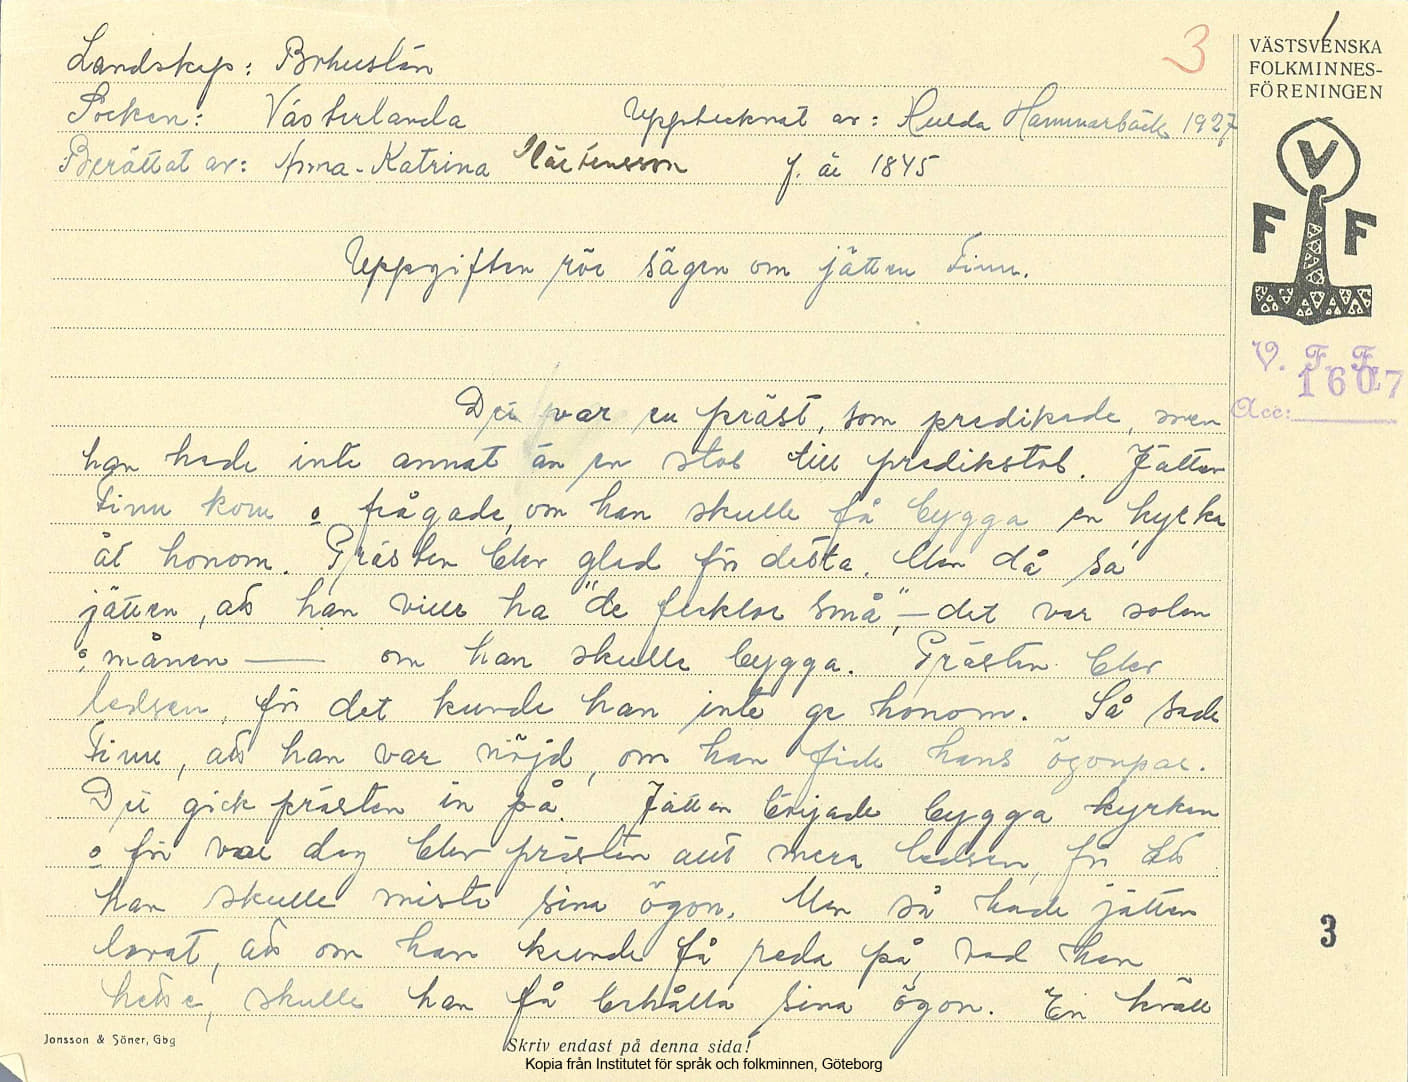 3
Landskap: Bohuslän
Socken: Västerlanda Upptecknat av: Hulda Hammarbäck 1927
Berättat av: Anna-Katrina Mårtensson f. år 1845
Uppgiften rör sägen om jätten Finn.
Det var en präst, som predikade, men
han hade inte annat än en stol till predikstol. Jätten
Finn kom o frågade, om han skulle få bygga en kyrka
åt honom. Prästen blev glad för detta. Men då sa
jätten, att han ville ha "de facklor små", — det var solen
o månen — om han skulle bygga. Prästen blev
ledsen, för det kunde han inte ge honom. Så sade
Finn, att han var nöjd, om han fick hans ögonpar.
Det gick prästen in på. Jätten började bygga kyrkan
o för var dag blev prästen allt mera ledsen, för att
han skulle mista sina ögon. Men så hade jätten
lovat, att om han kunde få reda på, vad han
hette, skulle han få behålla sina ögon. En kväll
Jonsson & Söner, Gbg
Skriv endast på denna sida!
Kopia från Institutet för språk och folkminnen, Göteborg
VÄSTSVENSKA
FOLKMINNES-
FÖRENINGEN
V
F F
V. F. F.
1607
Acc:
3